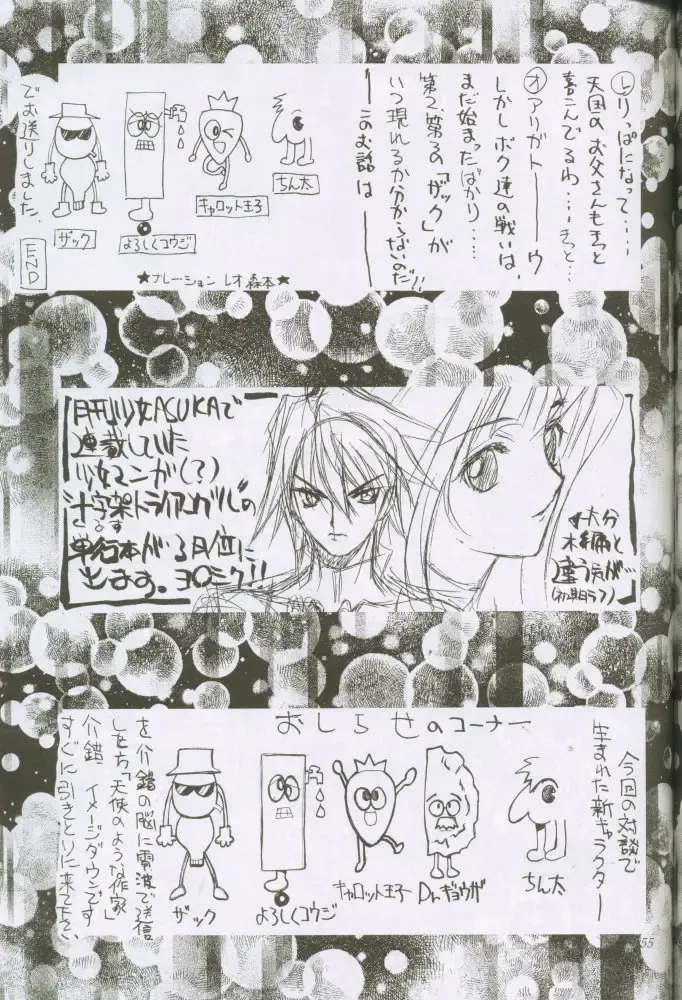 りっぱになって……
天国のお父さんもきっと
喜こんでるわ…‥きっと…
オ アリガトーーウ
しかしボク達の戦いは、
まだ始まったばかり……
第2、第3の「ザック」が
いつ現れるか分からないのだ!!
――このお話は――
ちん太
キャロット王子
よろしくコウジ
ザック
★ナレーション レオ森本★
でお送りしました。
END
月刊少女ASUKAで
連載していた
少女マンガ(?)
十字架トライアングルの
単行本が3月位に
出ます。ヨロシク!!
大分
本編と
違う気が…
(初期ラフ)
おしらせのコーナー
今回の対談で
生まれた新キャラクター
ちん太
Dr.ギョウザ
キャロット王子
よろしくコウジ
ザック
を介錯の脳に電波で送信
した方「天使のような作家
介錯」イメージダウンです
すぐに引きとりに来て下さい
55